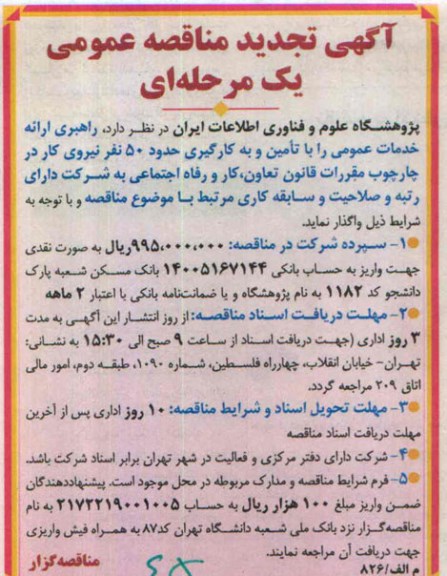 آگهی تجدید مناقصه عمومی
یک مرحله‌ای
پژوهشگاه علوم و فناوری اطلاعات ایران در نظر دارد، راهبری ارائه
خدمات عمومی را با تأمین و به کارگیری حدود ۵۰ نفر نیروی کار در
چارچوب مقررات قانون تعاون،کار و رفاه اجتماعی به شرکت دارای
رتبه و صلاحیت و سابقه کاری مرتبط با موضوع مناقصه و با توجه به
شرایط ذیل واگذار نماید.
۱- سپرده شرکت در مناقصه: ۹۹۵،۰۰۰،۰۰۰ریال به صورت نقدی
جهت واریز به حساب بانکی ۱۴۰۰۵۱۶۷۱۴۴ بانک مسکن شعبه پارک
دانشجو کد ۱۱۸۲ به نام پژوهشگاه و یا ضمانت‌نامه بانکی با اعتبار ۲ ماهه
۲- مهلت دریافت اسناد مناقصه: از روز انتشار این آگهی به مدت
۳ روز اداری (جهت دریافت اسناد از ساعت ۹ صبح الی ۱۵:۳۰ به نشانی:
تهران- خیابان انقلاب، چهارراه فلسطین، شماره ۱۰۹۰، طبقه دوم، امور مالی
اتاق ۲۰۹ مراجعه گردد.
۳- مهلت تحویل اسناد و شرایط مناقصه: ۱۰ روز اداری پس از آخرین
مهلت دریافت اسناد مناقصه
۴- شرکت دارای دفتر مرکزی و فعالیت در شهر تهران برابر اسناد شرکت باشد.
۵- فرم شرایط مناقصه و مدارک مربوطه در محل موجود است. پیشنهاددهندگان
ضمن واریز مبلغ ۱۰۰ هزار ریال به حساب ۲۱۷۲۲۱۹۰۰۱۰۰۵ به نام
مناقصه‌گزار نزد بانک ملی شعبه دانشگاه تهران کد۸۷ به همراه فیش واریزی
جهت دریافت آن مراجعه نمایند.
م الف/۸۲۶ مناقصه‌گزار